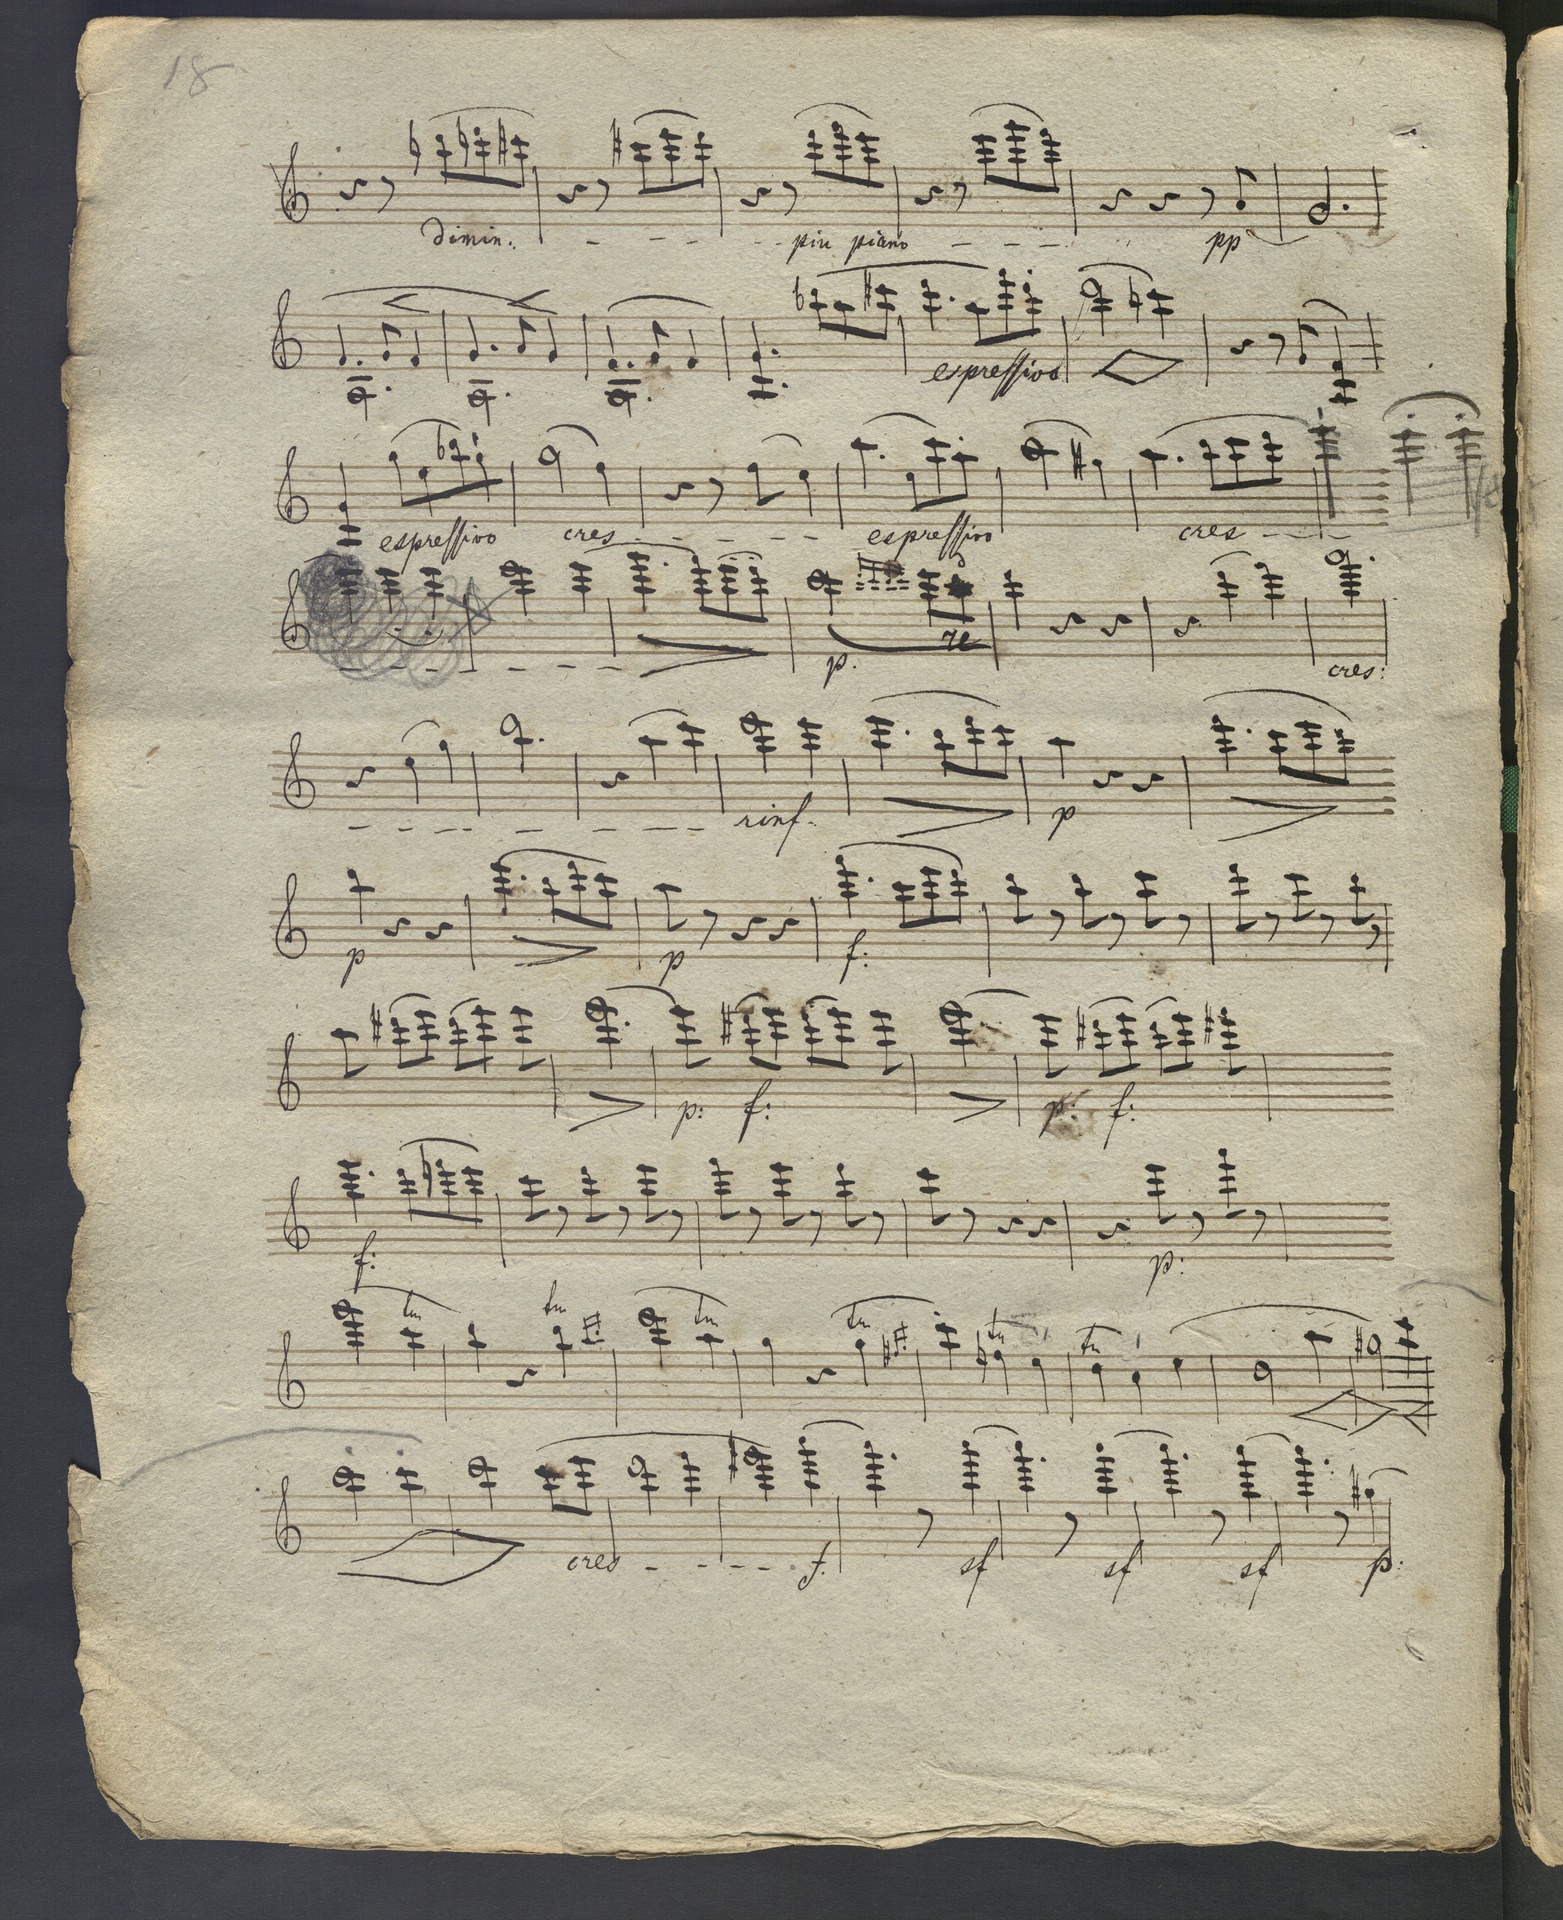 18
dimin. - - - - - - piu piano - - - - pp
espressivo
espressivo cres - - - - - - espressivo cres - - - -
- - - - - - - p. cres:
- - - - - - - - - rinf. p
p p f:
p: f: p: f:
f: p:
tr tr tr tr tr tr
cres - - - - f. sf sf sf p: